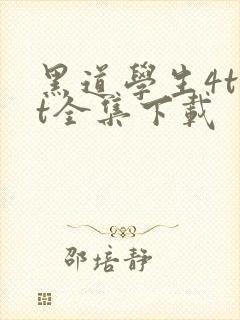 黑道學生4t
t全集下載
邵培靜